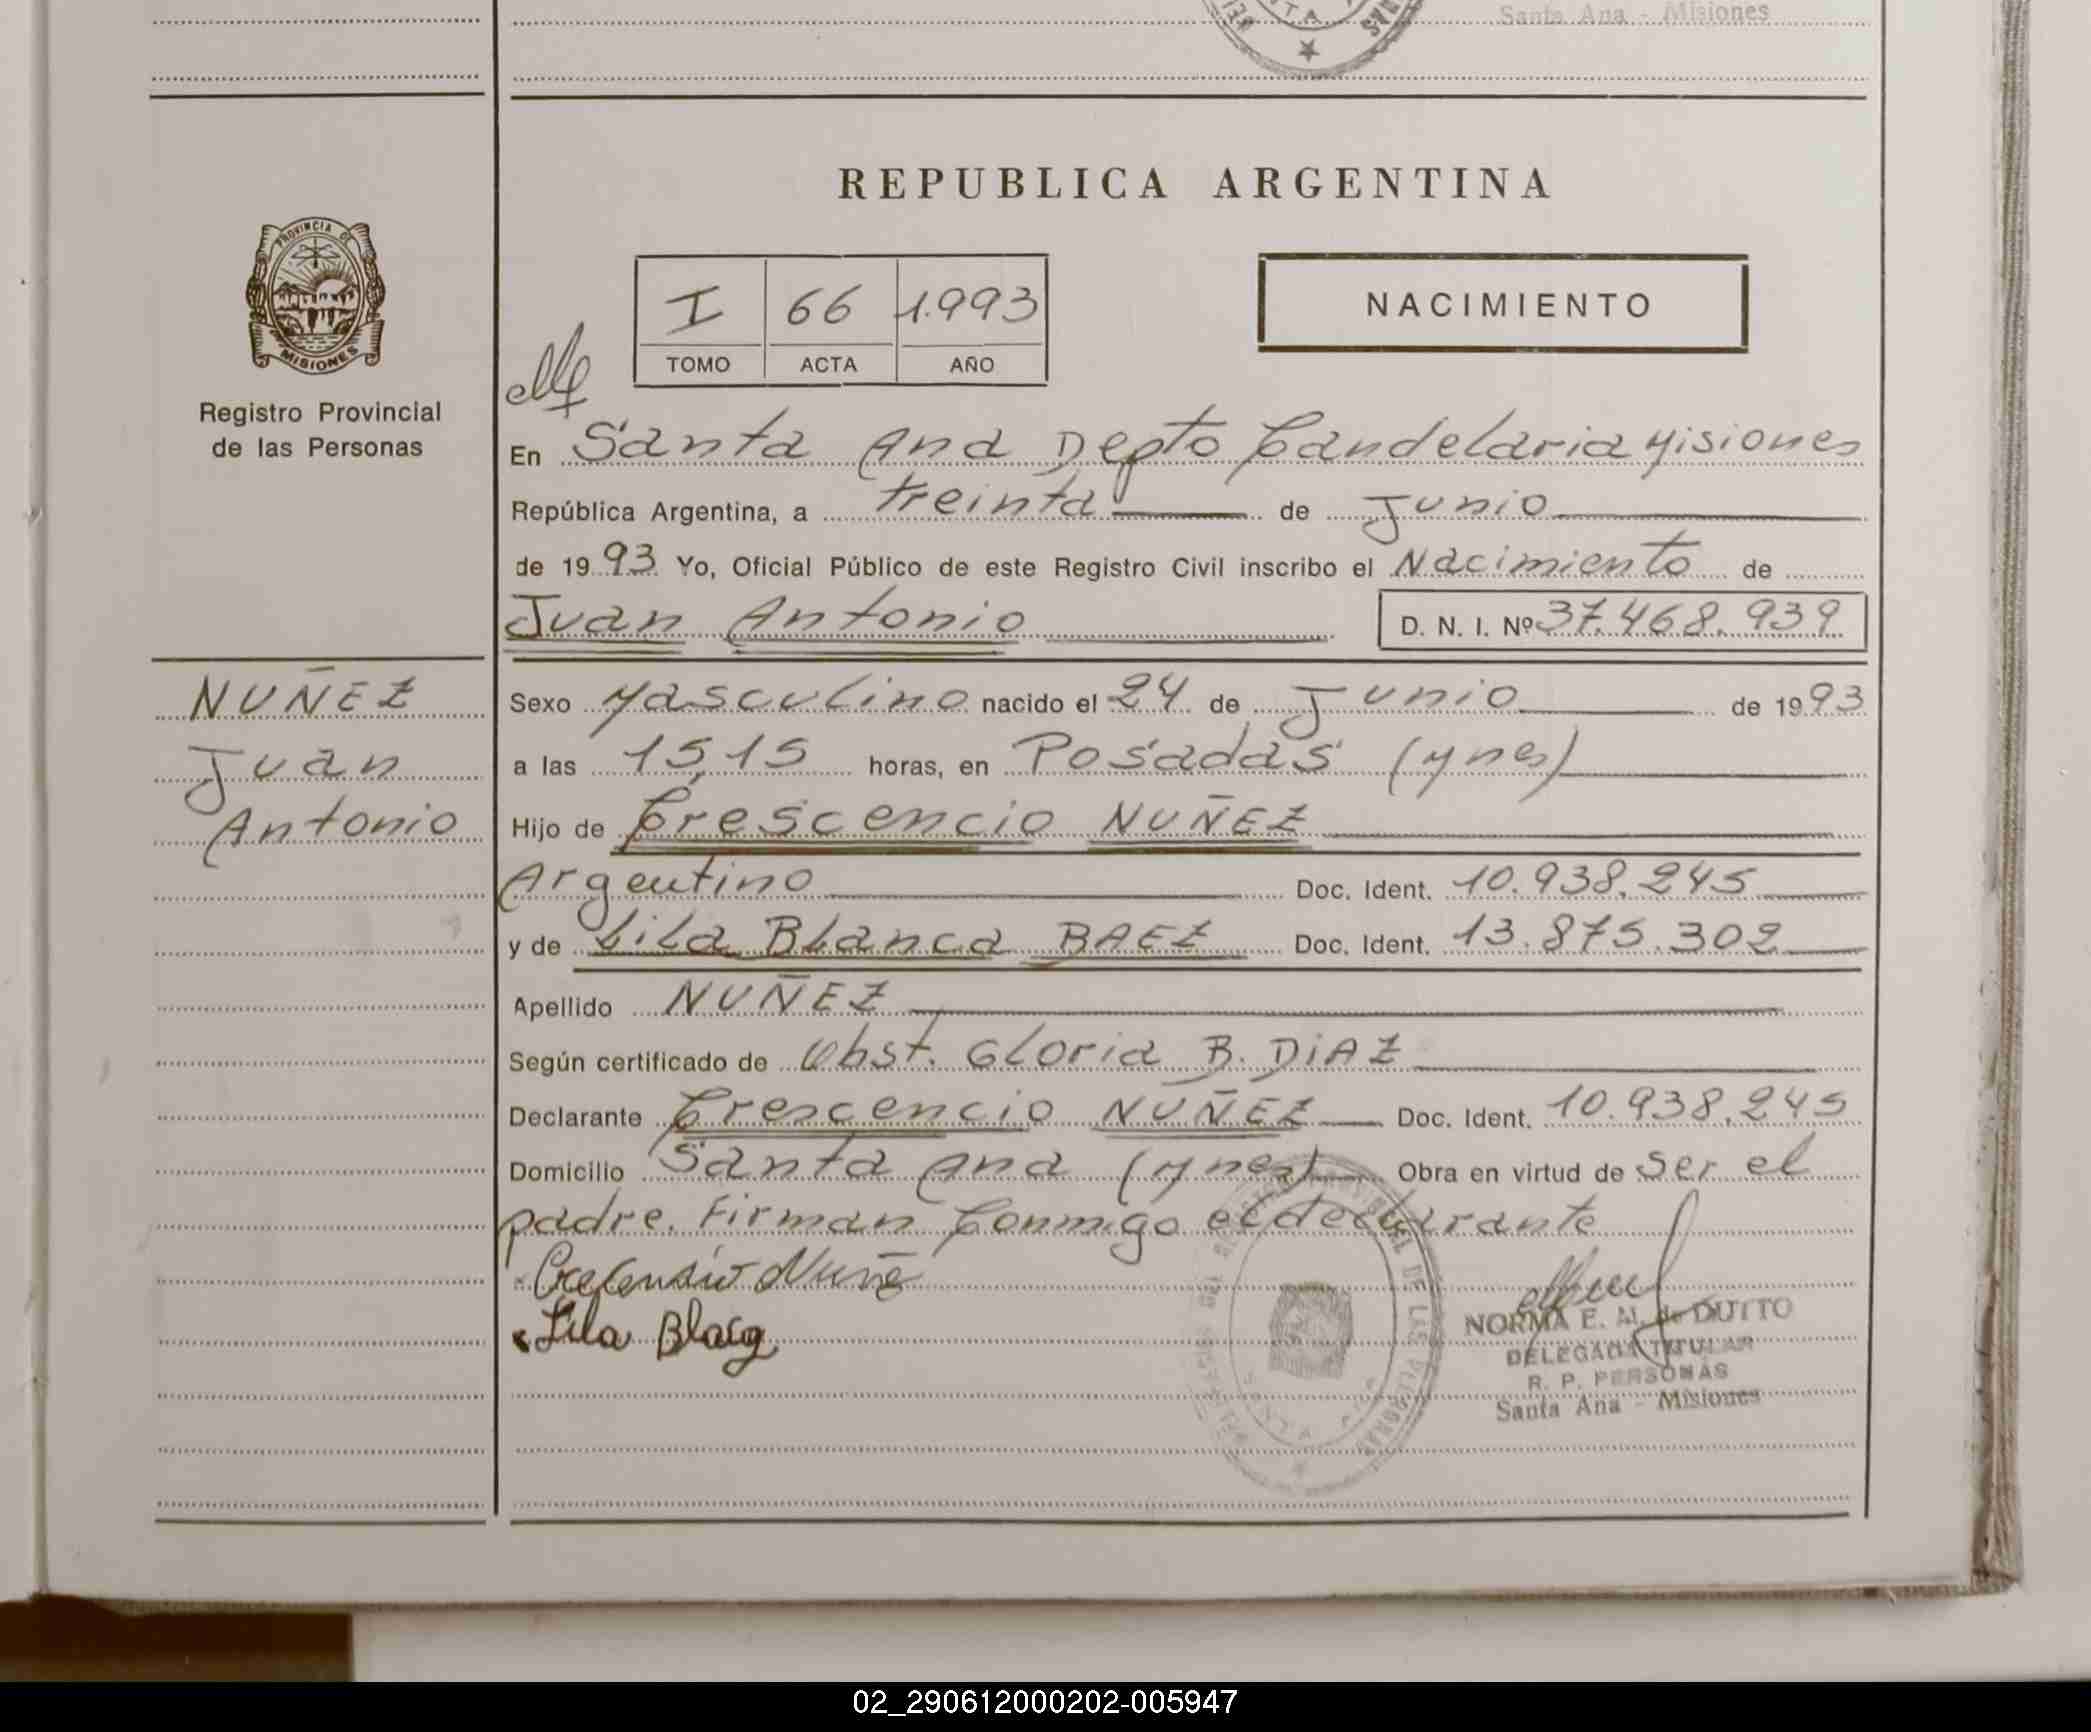 Santa Ana - Misiones
REPUBLICA ARGENTINA
PROVINCIA DE
MISIONES
Registro Provincial
de las Personas
I 66 1.993
TOMO ACTA AÑO
NACIMIENTO
En Santa Ana Depto Candelaria Misiones
República Argentina, a treinta de Junio
de 1993 Yo, Oficial Público de este Registro Civil inscribo el Nacimiento de
Juan Antonio D. N. I. Nº 37.468.939
NUÑEZ
Juan
Antonio
Sexo Masculino nacido el 24 de Junio de 1993
a las 15,15 horas, en Posadas (Mnes)
Hijo de Crescencio NUÑEZ
Argentino Doc. Ident. 10.938.245
y de Lila Blanca BAEZ Doc. Ident. 13.875.302
Apellido NUÑEZ
Según certificado de Obst. Gloria B. DiAZ
Declarante Crescencio NUÑEZ Doc. Ident. 10.938.245
Domicilio Santa Ana (Mnes) Obra en virtud de ser el
padre. Firman Conmigo el declarante
Lila
NORMA E. N. de DUTTO
DELEGADA TITULAR
R. P. PERSONAS
Santa Ana - Misiones
02_290612000202-005947